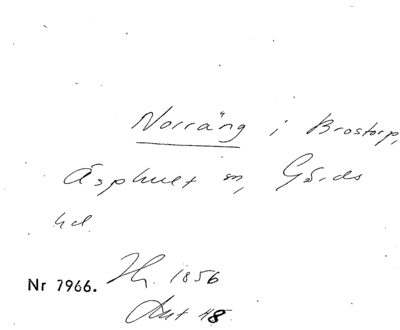 Norräng i Brostorp,
Äsphult sn, Gärds
hd.
Nr 7966. Hfl. 1856
Akt 48